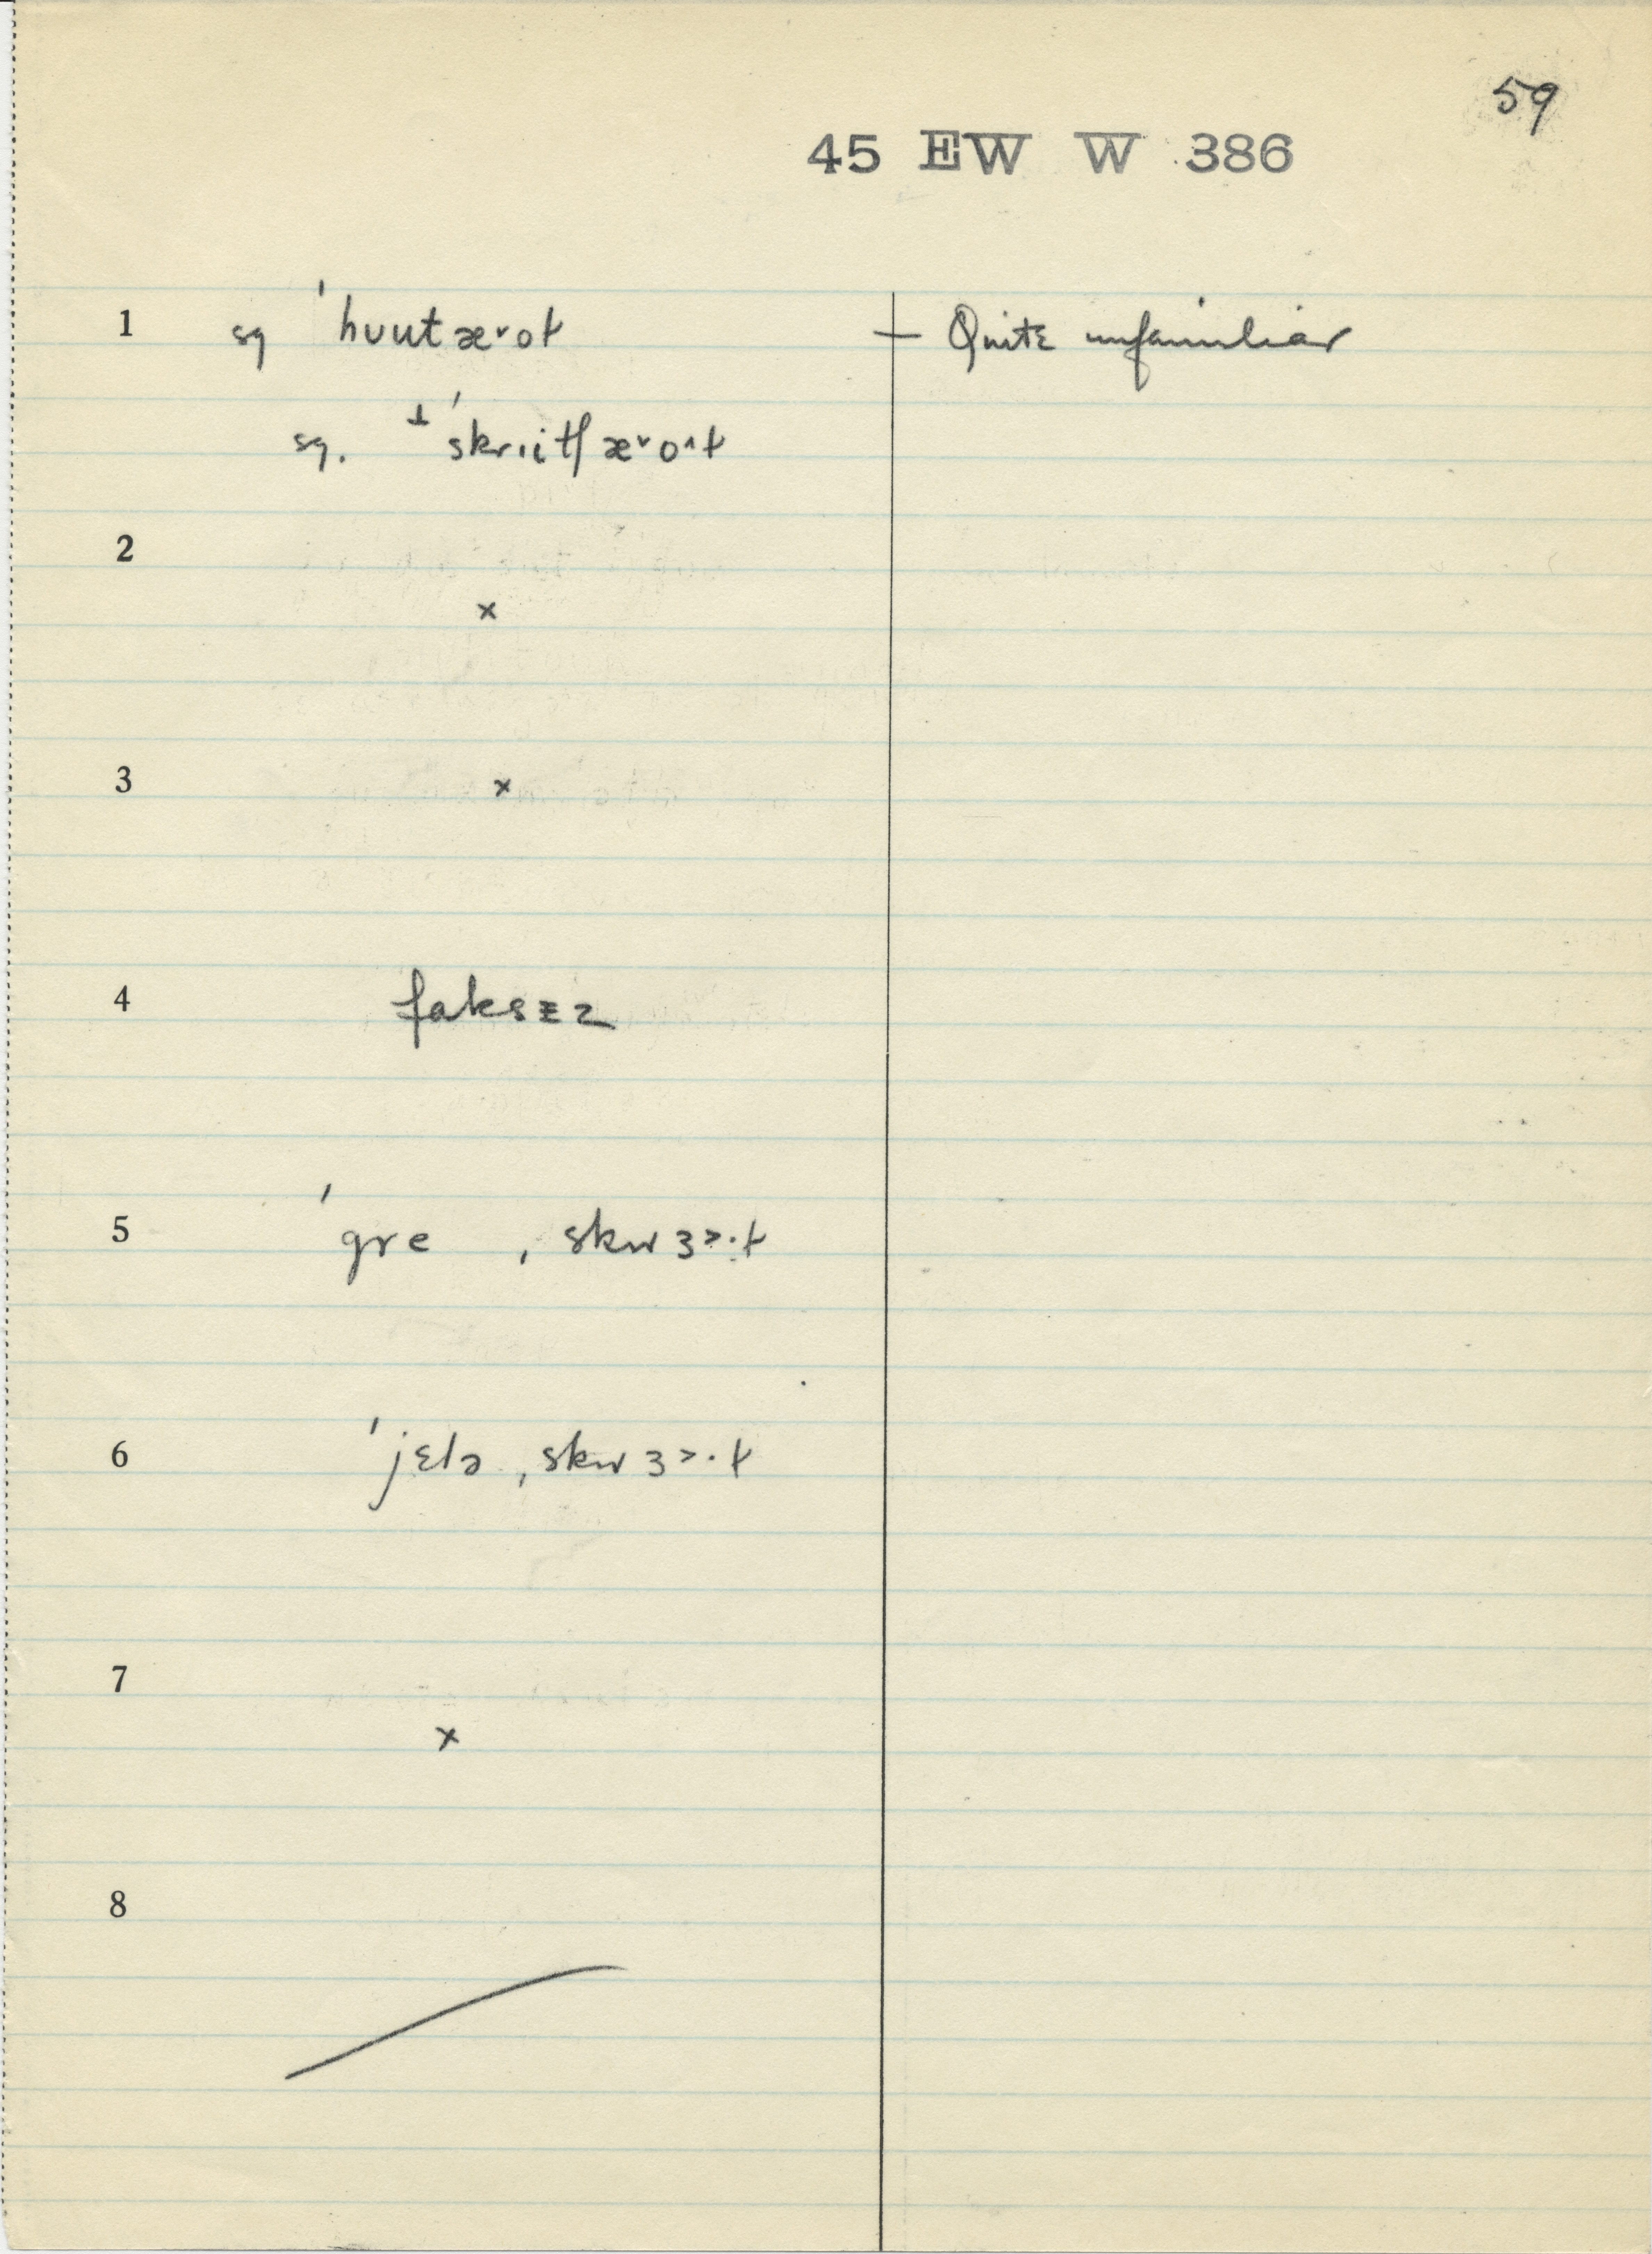 59
45 EW W 386
1 sg ˈhuutæ˅oɫ — Quite unfamiliar
sg. ⊥ ˈskriitʃæ˅o˄ɫ
2
×
3 ×
4 faksɪz
5 ˈgre ˌskwɜ˃·ɫ
6 ˈjɛlə ˌskwɜ˃·ɫ
7
×
8